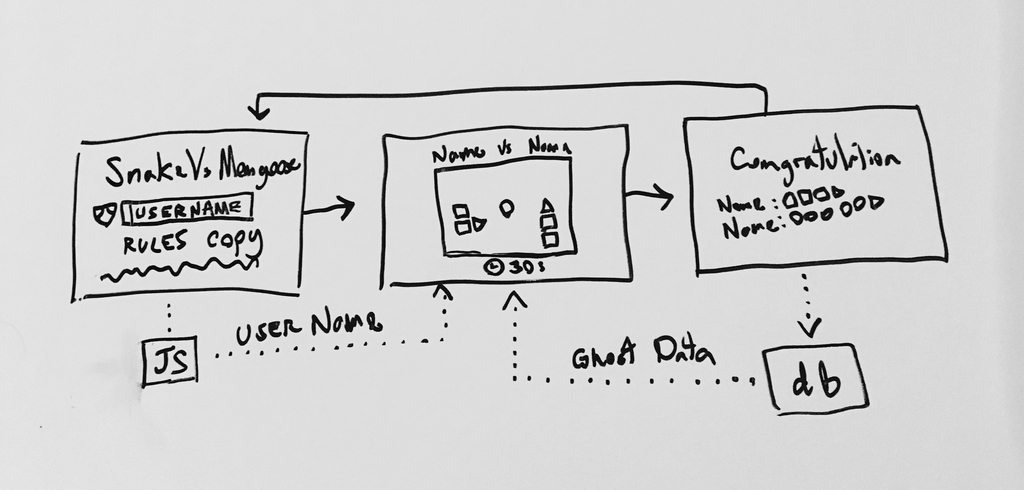 Snake Vs Mongoose
USERNAME
RULES COPY
Name vs Name
30s
Congratulation
Name:
Name:
JS
USER NAME
Ghost Data
db